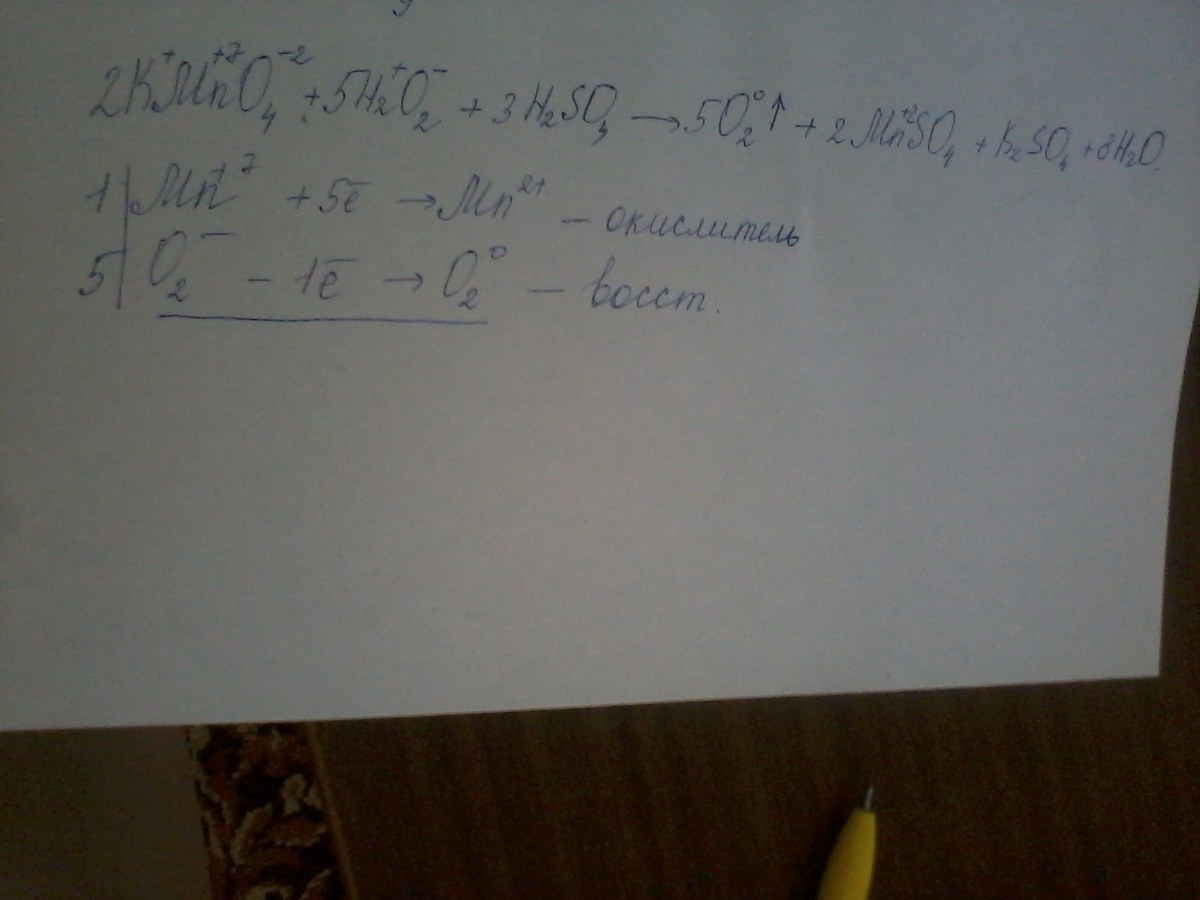 2K⁺Mn⁺⁷O₄⁻² + 5H₂⁺O₂⁻ + 3H₂SO₄ → 5O₂⁰↑ + 2Mn⁺²SO₄ + K₂SO₄ + 8H₂O
1 | Mn⁺⁷ + 5ē → Mn²⁺ – окислитель
5 | O₂⁻ – 1ē → O₂⁰ – восст.